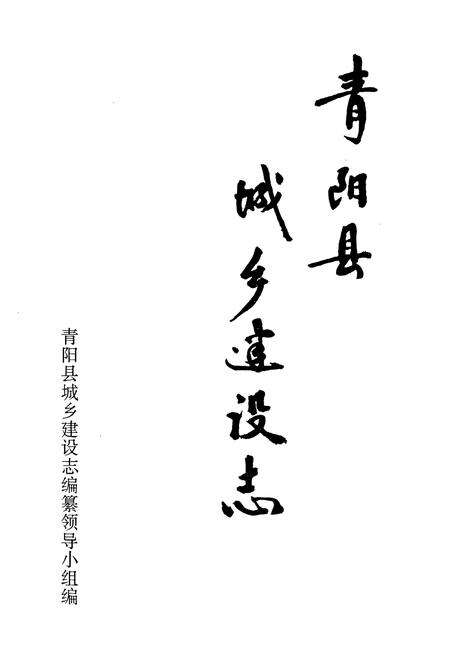 青阳县
城乡建设志
青阳县城乡建设志编纂领导小组编